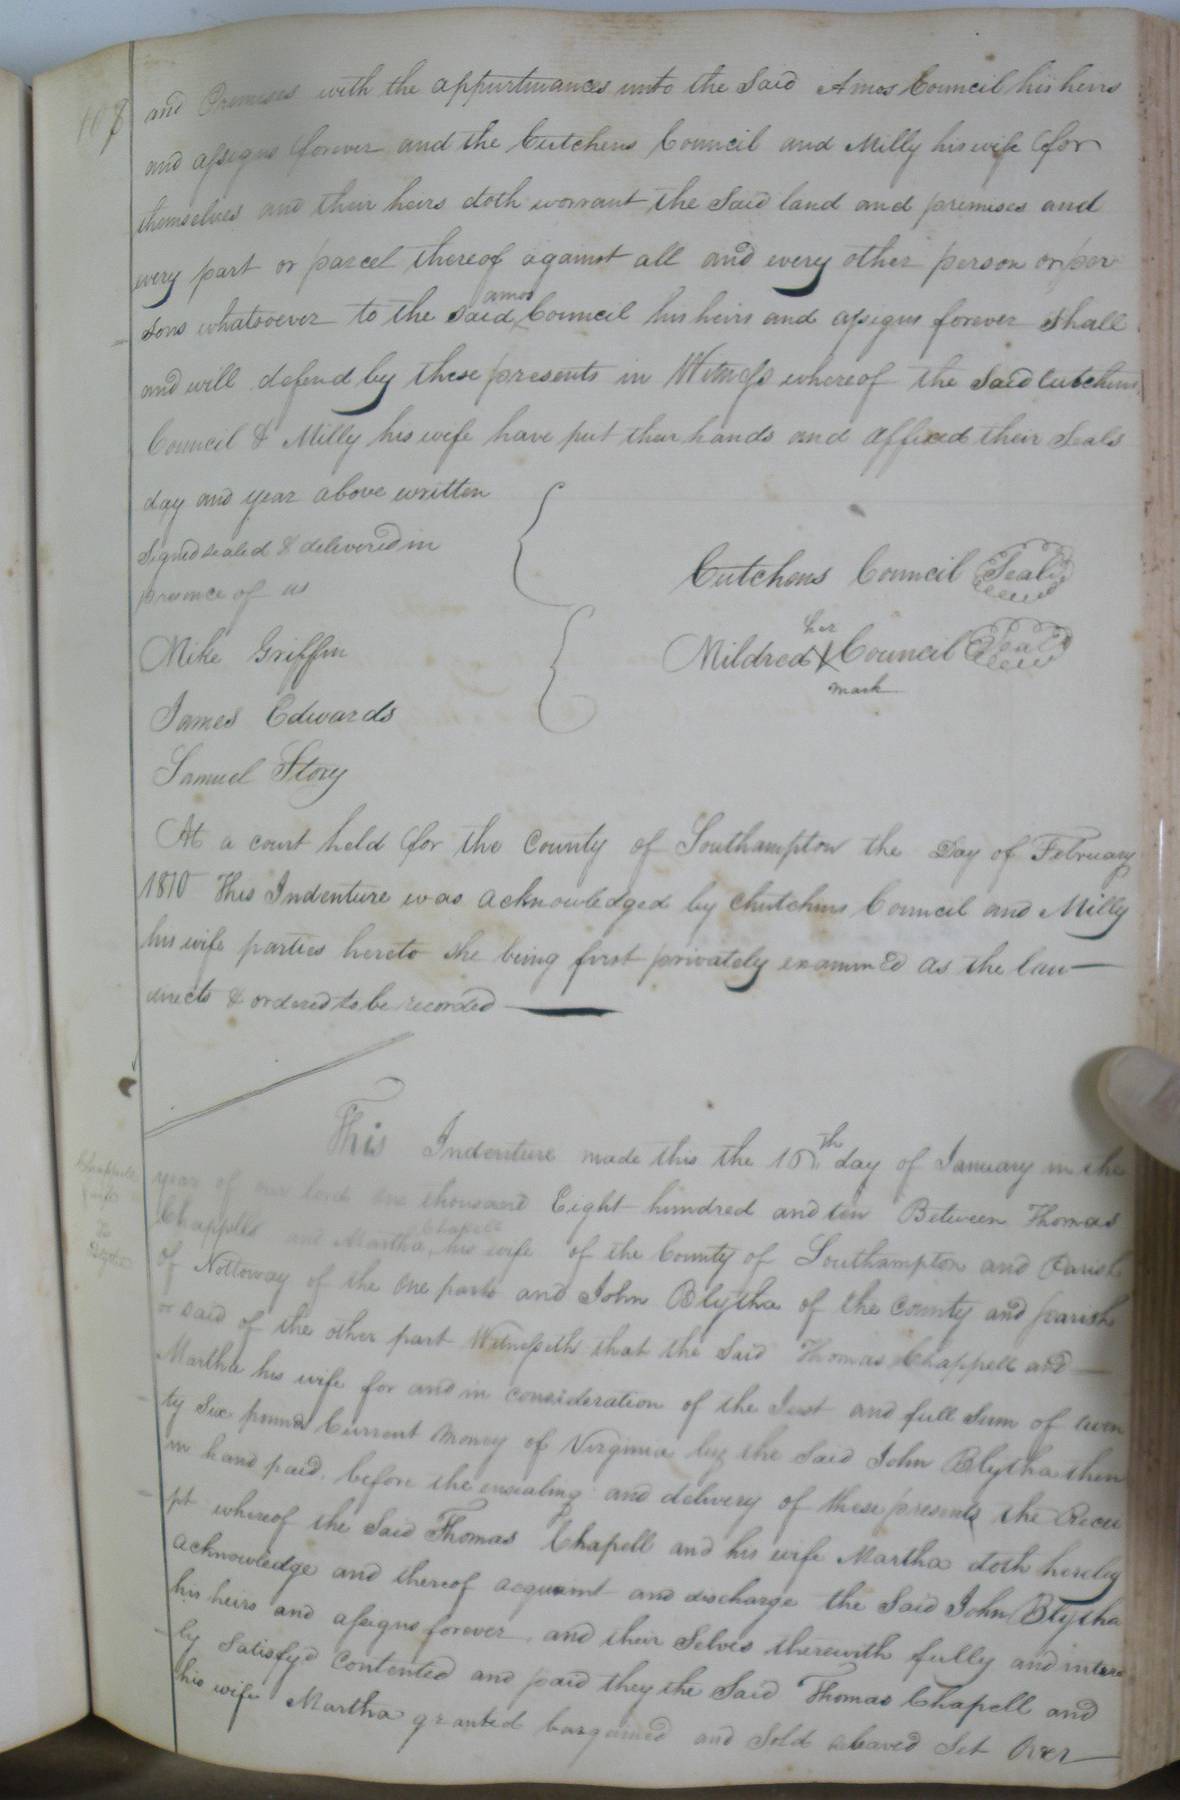 108
and Premises with the appurtinances unto the Said Amos Council his heirs
and assigns forever and the Cutchens Council and Milly his wife for
themselves and their heirs doth warrant the Said land and premises and
every part or parcel thereof against all and every other person or per
sons whatsoever to the said amos Council his heirs and assigns forever shall
and will defend by these presents in Witness whereof the Said Cutchens
Council & Milly his wife have put their hands and affixed their Seals
day and year above written
Signed sealed & delivered in
presence of us
Cutchens Council Seal
Mike Griffin
her
Mildred X Council Seal
mark
James Edwards
Samuel Story
At a court held for the County of Southampton the Day of February
1810 This Indenture was acknowledged by Chutchins Council and Milly
his wife parties hereto she being first privately examined as the law
directs & ordered to be recorded
This Indenture made this the 16th day of January in the
Chappell
& wife
To
Blytha
year of our lord one thousand Eight hundred and ten Between Thomas
Chappell and Martha Chapell his wife of the County of Southampton and Parish
of Nottoway of the one part and John Blytha of the County and parish
or said of the other part Witnesseth that the Said Thomas Chappell and
Martha his wife for and in consideration of the Just and full Sum of twen
ty Six pound Current money of Virginia by the Said John Blytha them
in hand paid before the ensealing and delivery of these presents the Recei
pt whereof the Said Thomas Chapell and his wife Martha doth hereby
acknowledge and thereof acquaint and discharge the Said John Blytha
his heirs and assigns forever and their Selves therewith fully and intere
ly Satisfyd Contented and paid they the Said Thomas Chapell and
his wife Martha granted bargained and Sold Set Over